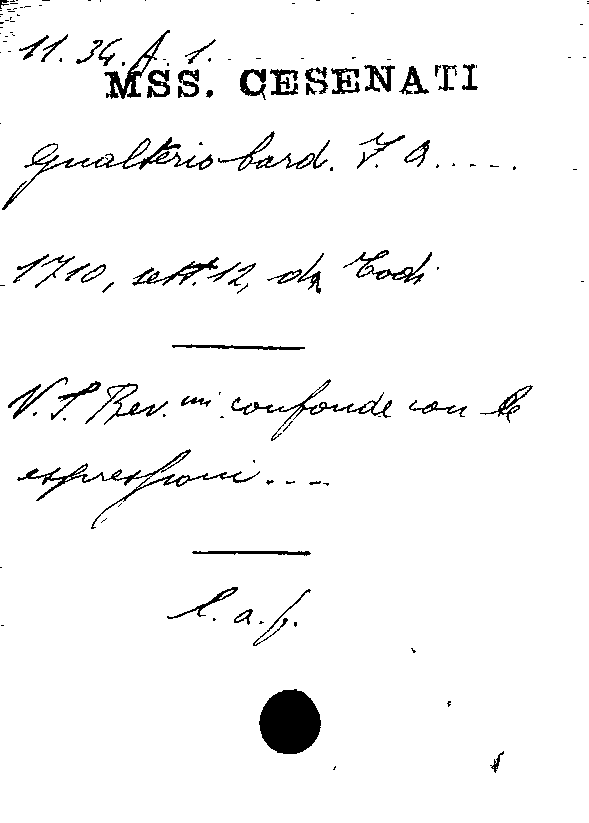 11. 34. A. 1.
MSS. CESENATI
Gualterio card. F. A.....
1710, sett. 12, da Todi
V. S. Rev.mi confonde con le
espressioni....
l. a. f.